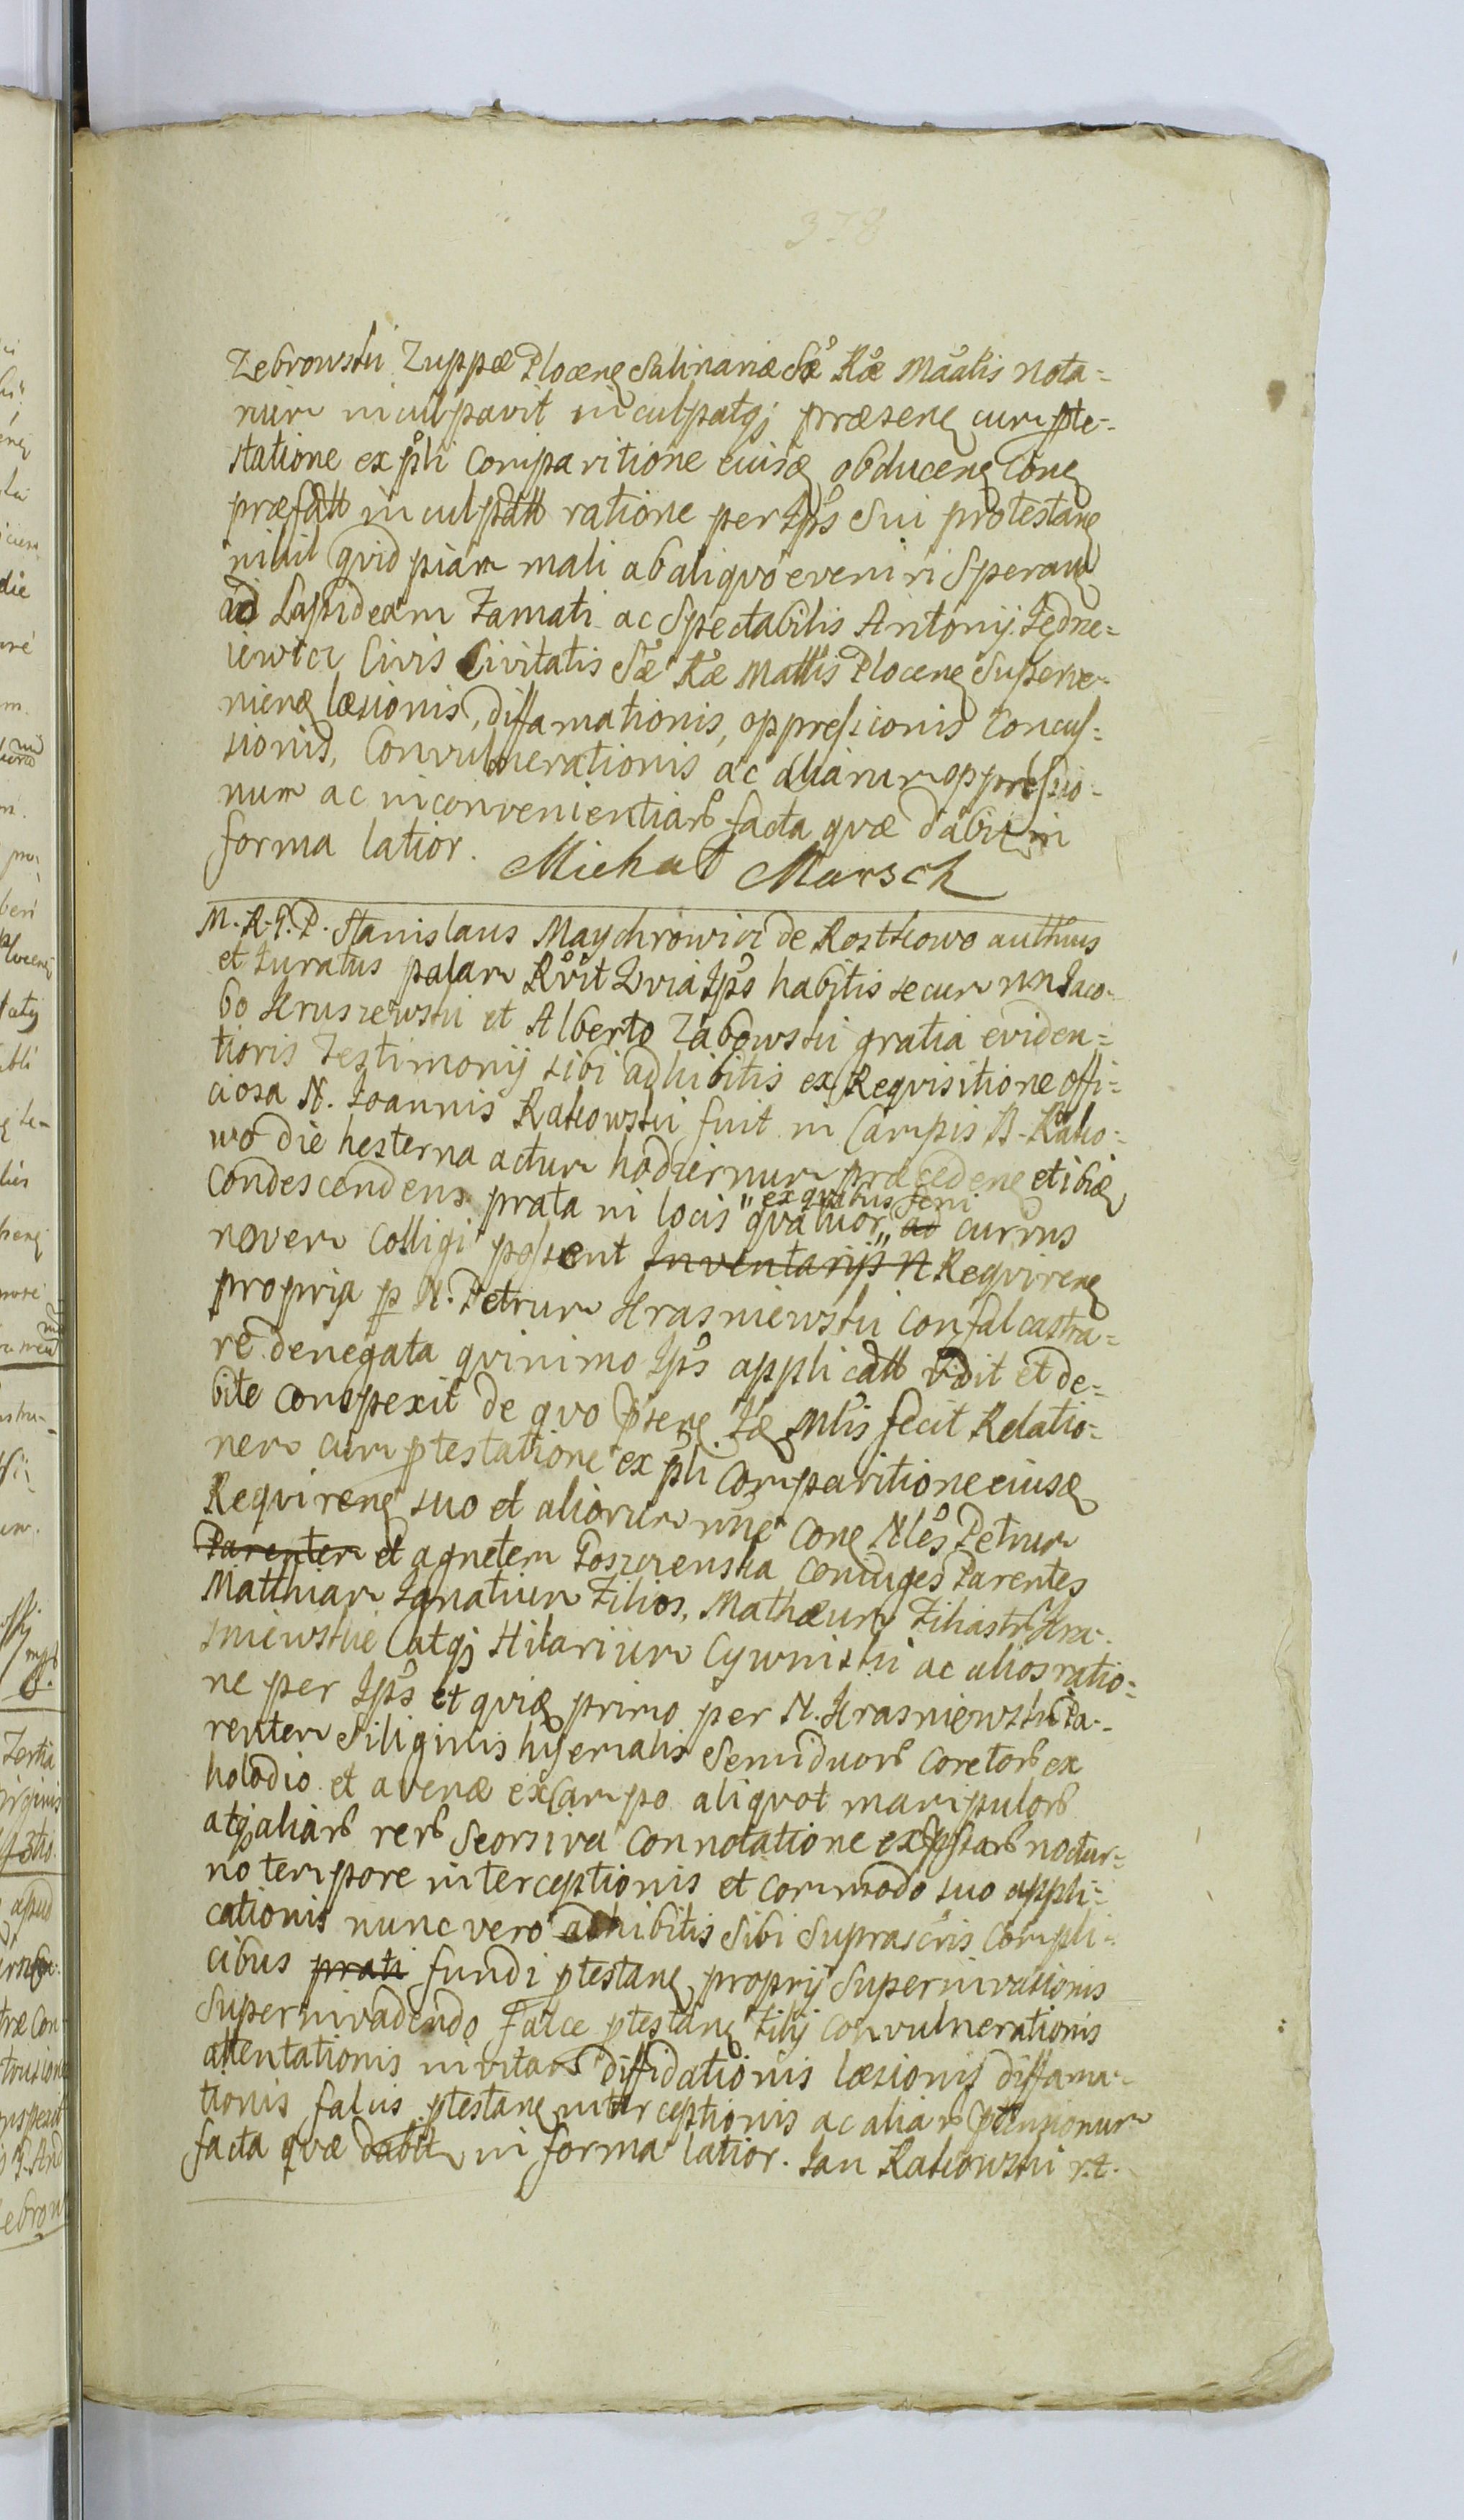 378
Zebrowski Zuppæ Plocen Salinariæ Sæ Ræ Maatis Nota=
rium inculpavit inculpatqz præsen cum pte=
statione ex pli Comparitione eiusd obducen Con
præfatt inculpatt ratione per Ips Sui protestan
nihil quid piam mali ab aliquo eveniri Speran
ad Lapideam Famati ac Spectabilis Antonij Jędrze=
iewicz Civis Civitatis Sæ Ræ Mattis Plocen Superve=
nien læsionis, diffamationis, oppressionis Concus=
sionis, Convulnerationis ac aliarum oppressio=
num ac inconvenientiar facta quæ dabit in
forma latior. Michał Marsch
M. R. G. P. Stanislaus Maychrowicz de Rostkowo authus
et Juratus palam Rvit Quia Ips habitis secum NN Jaco-
bo Kruszewski et Alberto Zabowski gratia eviden=
tioris Testimonij sibi adhibitis ex Requisitione offi=
ciosa N. Joannis Rakowski fuit in Campis B. Rako=
wo die hesterna actum hodiernum præceden et ibid
Condescendens prata in locis quatuor „ex quibus feni„ ad currus
novem Colligi possent Inventarijs N Requiren
propria p N. Petrum Krasniewski Confalcastra=
re denegata quinimo Ips applicatt vidit et de=
bite Conspexit de quo psen Jd Mlis fecit Relatio=
nem cum ptestatione ex pli Comparitione eiusd
Requiren suo et aliorum nne Con Nles Petrum
Parentem et agnetem Goszczenska Coniuges Parentes
Matthiam Ignatium Filios, Mathæum Filiastr Kra-
sniewskie atqz Hilarium Cywinski ac alios ratio=
ne per Ips et quid primo per N. Krasniewski Pa-
rentem Siliginis hyemalis Semiduor Coretor ex
holodio et avenæ ex Campo aliquot manipulor
atqz aliar rer Seorsiva Connotatione exPssar noctur=
no tempore interceptionis et commodo suo appli=
cationis nunc vero adhibitis Sibi Suprascris Compli=
cibus prati fundi ptestan proprij Superinvasionis
Superinvadendo falce ptestan filij Convulnerationis
attentationis in vitam diffidationis læsionis diffama-
tionis falcis ptestan interceptionis ac aliar ptensionum
facta quæ dabit in forma latior. Jan Rakowski r.t.